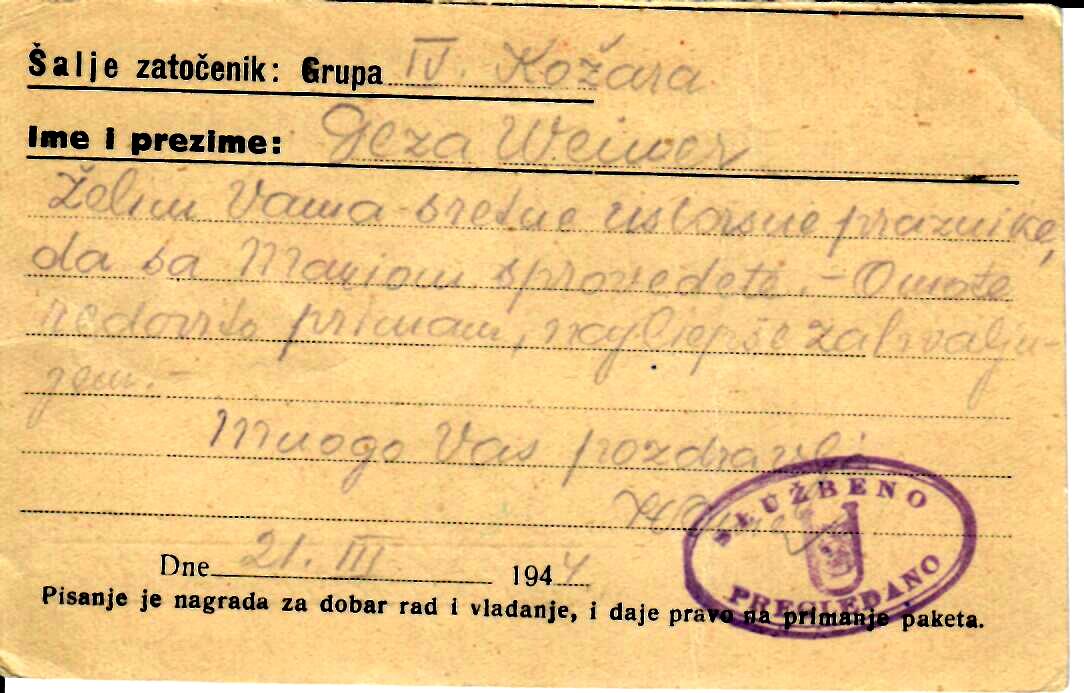 Šalje zatočenik: Grupa IV. Kožara
Ime i prezime: Geza Weiner
Želim Vama sretne uskrsne praznike,
da sa sprovedete. - Omote
redovito primam, najljepše zahvalju-
jem. -
Mnogo Vas pozdravlja
SLUŽBENO
PREGLEDANO
Dne 21. III 1944
Pisanje je nagrada za dobar rad i vladanje, i daje pravo na primanje paketa.